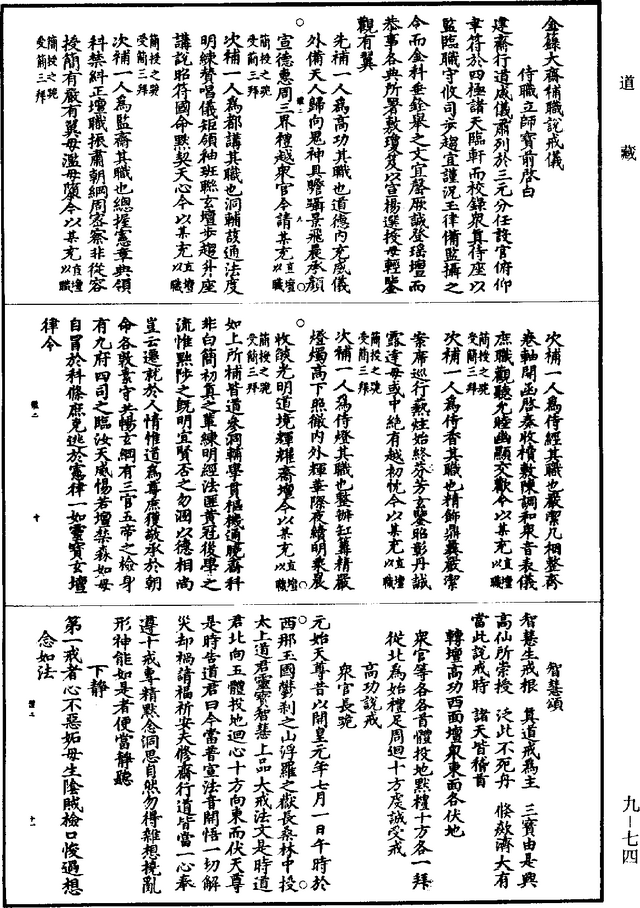 道藏
金籙大齋補職說戒儀
侍職立師寶前啓白
建齋行道威儀肅列於三元分任設官俯仰
聿符於四極諸天臨軒而校錄衆真侍座以
監臨職守攸司步趨宜謹況玉律備監攝之
令而金科垂銓舉之文宜罄厥誠登瑤壇而
恭事各典所署敷瓊笈以宣揚選授毋輕鑒
觀有翼
先補一人爲高功其職也道德內充威儀
外備天人歸向鬼神具瞻躡景飛晨承顔
宣德惠周三界禮越衆官今請某充直壇以職
簡授之㧞受簡三拜
次補一人爲都講其職也洞輔該通法度
明練贊唱儀矩領袖班聯玄壇步趨升座
講說昭符國命默契天心今以某充直壇以職
簡授之㧞受簡三拜
次補一人爲監齋其職也總握憲章典領
科禁糾正壇職振肅朝綱周密察非從容
授簡有嚴有翼毋濫毋隳今以某充直壇以職
簡授之㧞受簡三拜
次補一人爲侍經其職也嚴潔几楎整齊
卷軸開函啓奏收櫝敷陳調和衆音表儀
庶職觀聽允睦幽顯交歡今以某充直壇以職
簡授之㧞受簡三拜
次補一人爲侍香其職也精飾鼎彝嚴潔
案席巡行爇炷始終芬芳玄鑒昭彰丹誠
露達毋或中絶有越初忱今以某充直壇以職
簡授之㧞受簡三拜
次補一人爲侍燈其職也整辦缸籌精嚴
燈燭高下照徹內外輝華際夜續明乘晨
收燄光明道境輝耀齋壇今以某充直壇以職
簡授之㧞受簡三拜
如上所補皆道參洞輔學貫樞機通曉齋科
非白簡初真之輩練明經法匪黃冠後學之
流惟黜陟之既明宜賢否之勿溷以德相尚
豈云遷就於人情惟道爲尊庶獲敬承於朝
命各敦素守共暢玄綱有三官五帝之檢身
有九府四司之臨汝天威惕若壇禁森如毋
自冒於科條庶克逃於憲律一如靈寶玄壇
律令
智慧頌
智慧生戒根 真道戒爲主 三寶由是興
高仙所崇授 泛此不死舟 倏歘濟大有
當此說戒時 諸天皆稽首
轉壇高功西面壇衆東面各伏地
衆官等各各首體投地默禮十方各一拜
從北爲始禮足周迴十方虔誠受戒
高功說戒
衆官長跪
元始天尊昔以開皇元年七月一日午時於
西那玉國鬱刹之山浮羅之嶽長桑林中授
太上道君靈寶智慧上品大戒法文是時道
君北向五體投地迴心十方向東而伏天尊
是時告道君曰今當普宣法音開悟一切解
災却禍請福祈安夫修齋行道皆當一心奉
遵十戒專精默念洞思自然勿得雜想撓亂
形神能如是者便當靜聽
下靜
第一戒者心不惡妬毋生陰賊檢口悛過想
念如法
九－七四